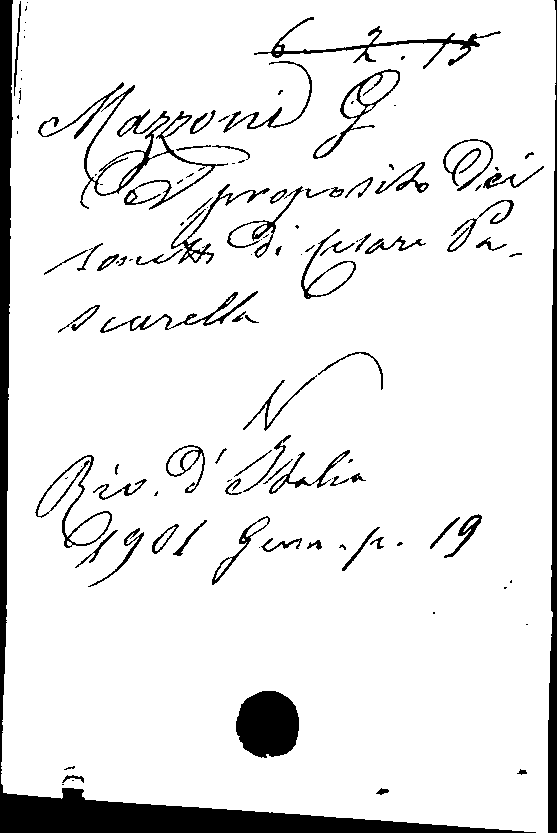 6. 2. 15
Mazzoni G
A proposito dei
sonetti di Cesare Pa-
scarella
N
Riv. d'Italia
1901 Genn. p. 19